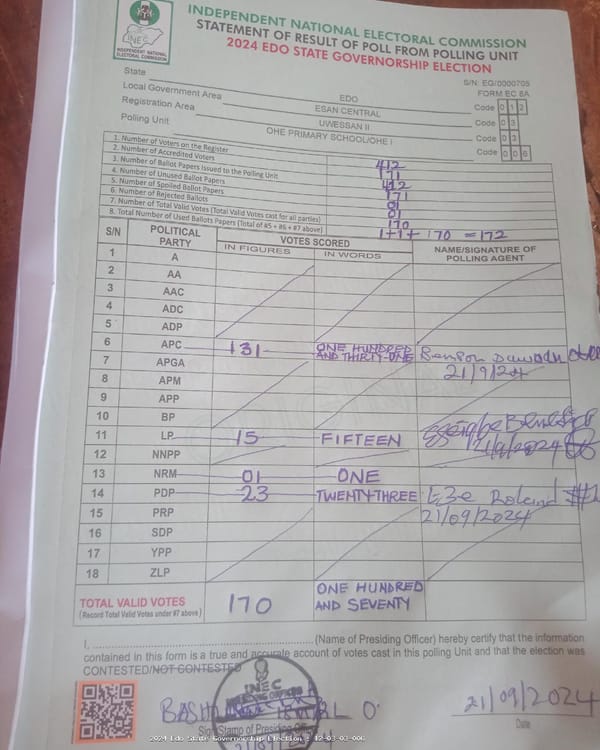 INEC
INDEPENDENT NATIONAL
ELECTORAL COMMISSION
INDEPENDENT NATIONAL ELECTORAL COMMISSION
STATEMENT OF RESULT OF POLL FROM POLLING UNIT
2024 EDO STATE GOVERNORSHIP ELECTION
S/N: EG/0000705
FORM EC 8A
State EDO Code 0 1 2
Local Government Area ESAN CENTRAL Code 0 3
Registration Area UWESSAN II Code 0 3
Polling Unit OHE PRIMARY SCHOOL/OHE I Code 0 0 6
1. Number of Voters on the Register 412
2. Number of Accredited Voters 171
3. Number of Ballot Papers Issued to the Polling Unit 412
4. Number of Unused Ballot Papers
5. Number of Spoiled Ballot Papers
6. Number of Rejected Ballots
7. Number of Total Valid Votes (Total Valid Votes cast for all parties) 170
8. Total Number of Used Ballots Papers (Total of #5 + #6 + #7 above) 1+1+ 170 =172
S/N POLITICAL PARTY VOTES SCORED NAME/SIGNATURE OF POLLING AGENT
IN FIGURES IN WORDS
1 A
2 AA
3 AAC
4 ADC
5 ADP
6 APC 131 ONE HUNDRED AND THIRTY-ONE Benson
21/9/24
7 APGA
8 APM
9 APP
10 BP
11 LP 15 FIFTEEN
21/9/2024
12 NNPP
13 NRM 01 ONE
14 PDP 23 TWENTY-THREE Eze Roland
21/09/2024
15 PRP
16 SDP
17 YPP
18 ZLP
TOTAL VALID VOTES 170 ONE HUNDRED AND SEVENTY
(Record Total Valid Votes under #7 above)
I, (Name of Presiding Officer) hereby certify that the information
contained in this form is a true and accurate account of votes cast in this polling Unit and that the election was
CONTESTED/NOT CONTESTED
INEC
21/09/2024
Sign/Stamp of Presiding Date
2024 Edo State Governorship Election : 12-03-03-006